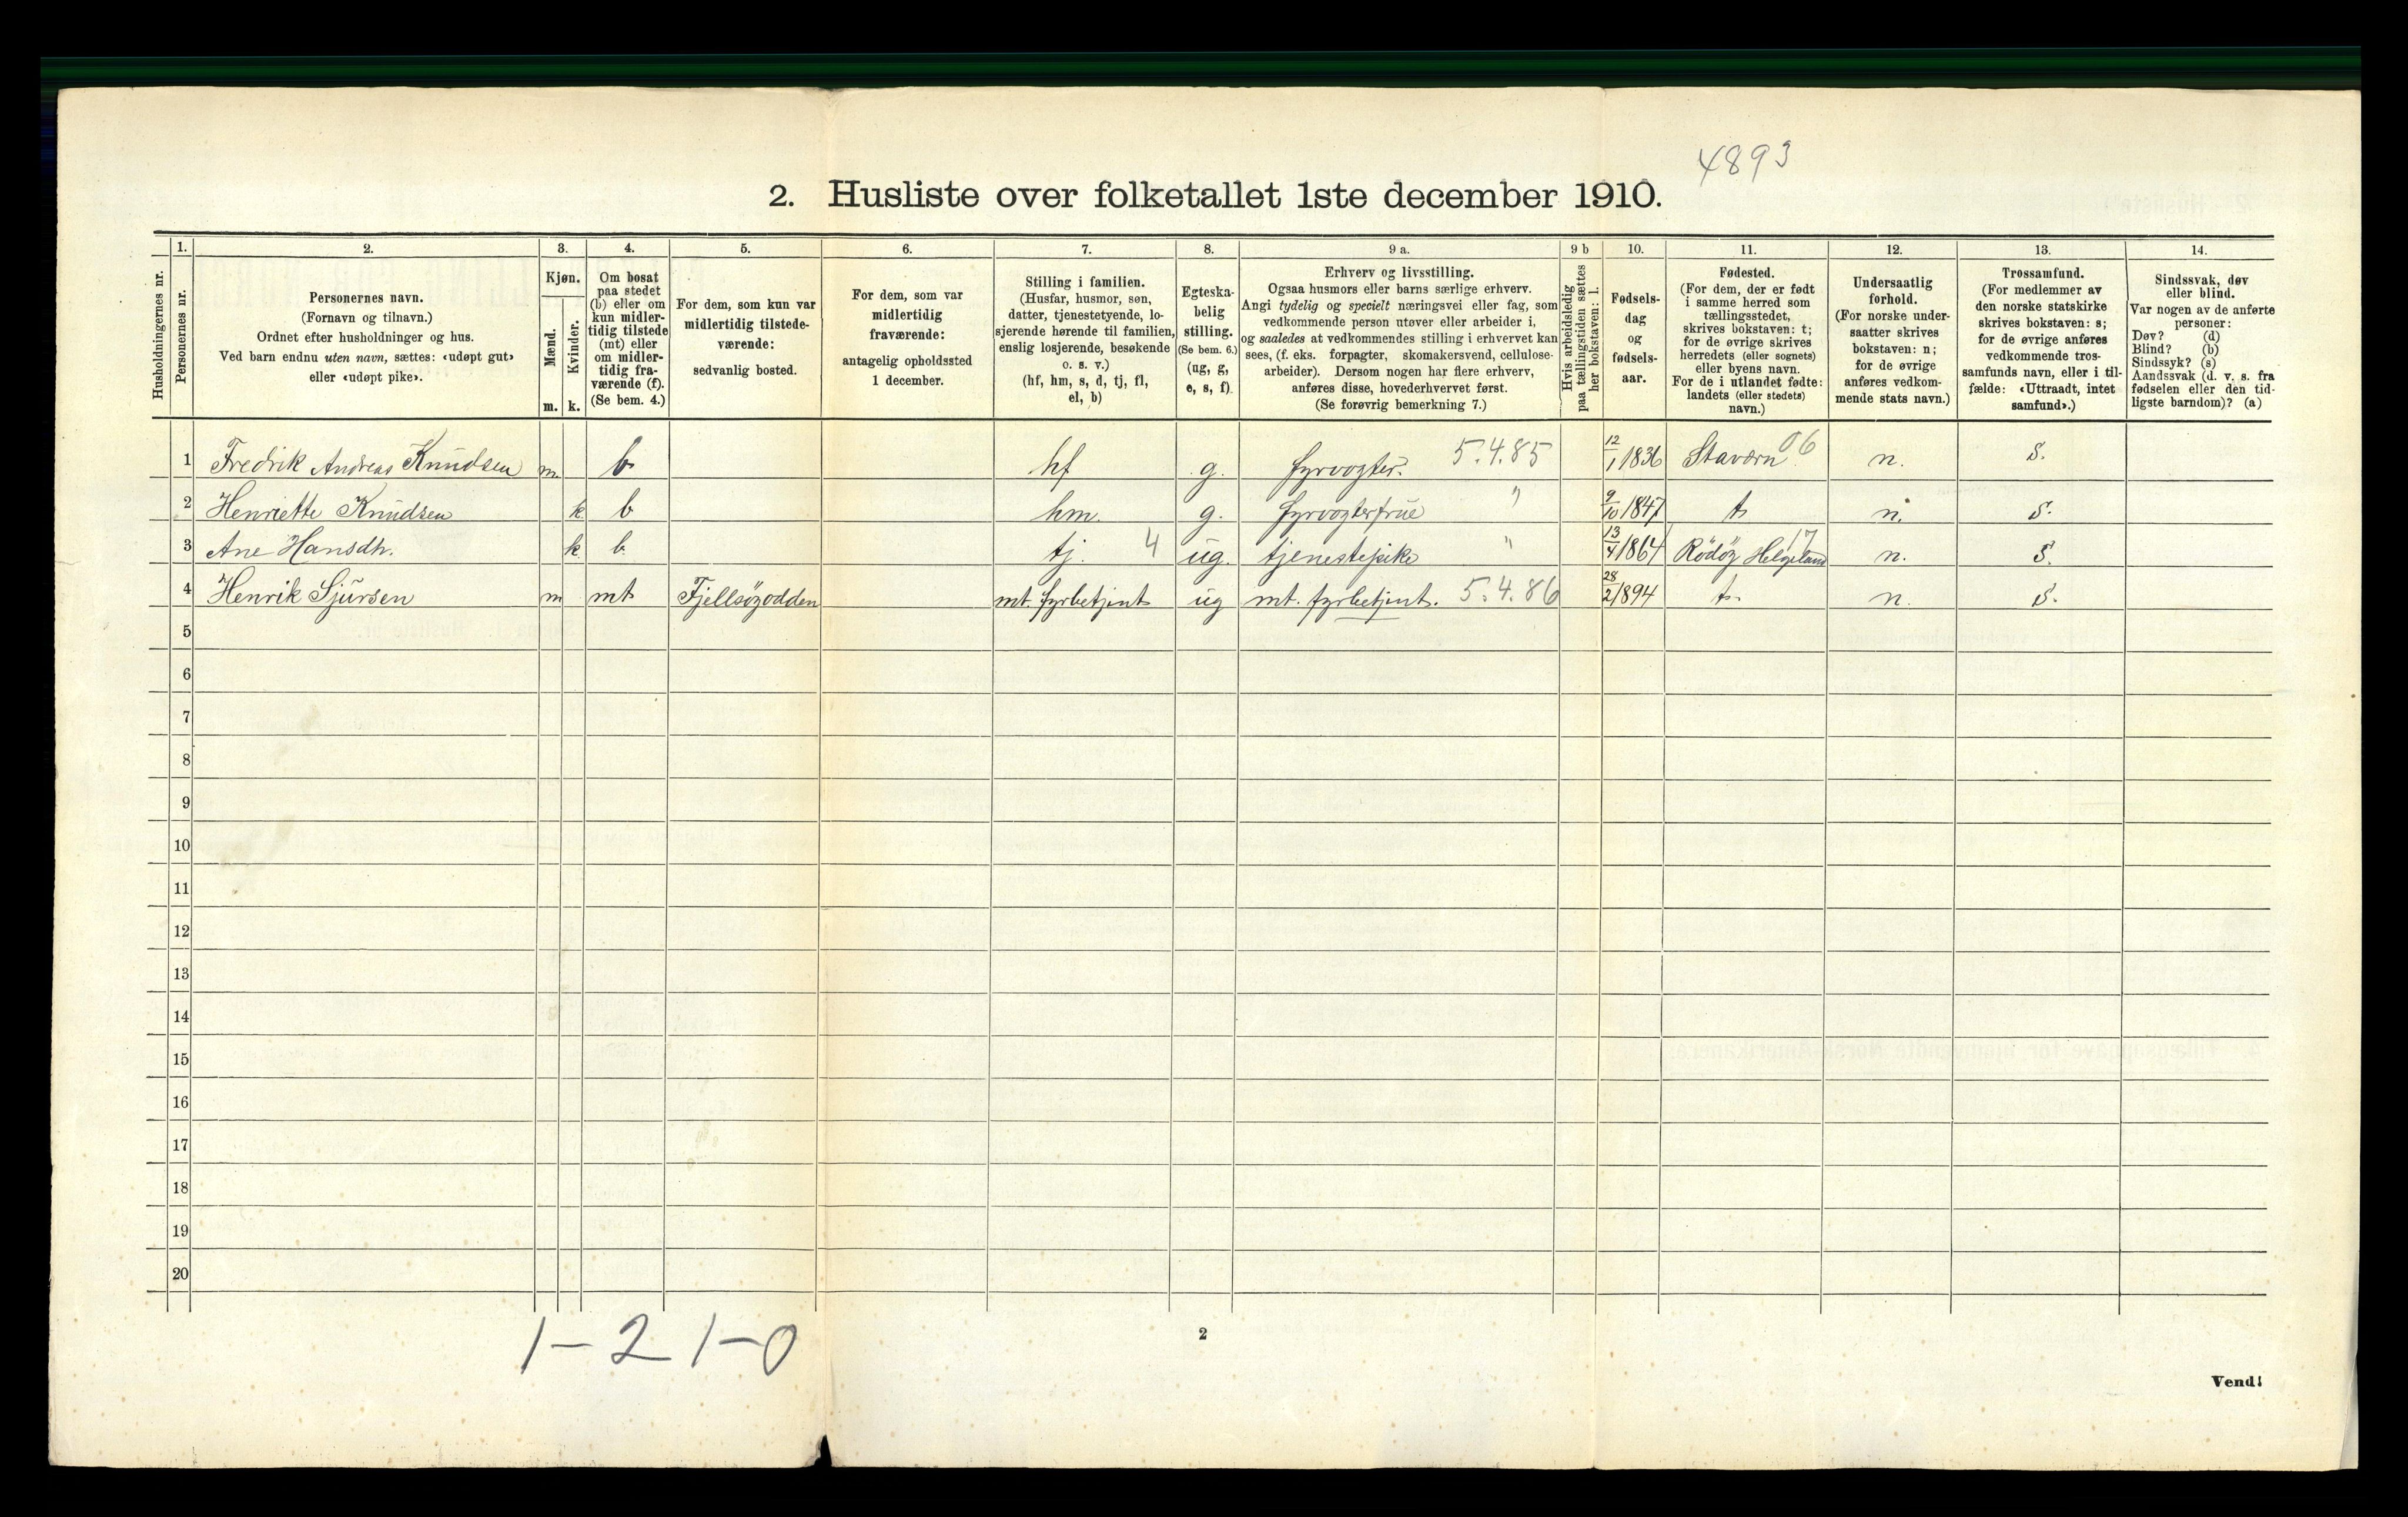 4893
2. Husliste over folketallet 1ste december 1910.
Husholdningernes nr.
1. Personernes nr.
2. Personernes navn.
(Fornavn og tilnavn.)
Ordnet efter husholdninger og hus.
Ved barn endnu uten navn, sættes: «udøpt gut»
eller «udøpt pike».
3. Kjøn.
Mænd. m.
Kvinder. k.
4. Om bosat
paa stedet
(b) eller om
kun midler-
tidig tilstede
(mt) eller
om midler-
tidig fra-
værende (f).
(Se bem. 4.)
5. For dem, som kun var
midlertidig tilstede-
værende:
sedvanlig bosted.
6. For dem, som var
midlertidig
fraværende:
antagelig opholdssted
1 december.
7. Stilling i familien.
(Husfar, husmor, søn,
datter, tjenestetyende, lo-
sjerende hørende til familien,
enslig losjerende, besøkende
o. s. v.)
(hf, hm, s, d, tj, fl,
el, b)
8. Egteska-
belig
stilling.
(Se bem. 6.)
(ug, g,
e, s, f)
9 a. Erhverv og livsstilling.
Ogsaa husmors eller barns særlige erhverv.
Angi tydelig og specielt næringsvei eller fag, som
vedkommende person utøver eller arbeider i,
og saaledes at vedkommendes stilling i erhvervet kan
sees, (f. eks. forpagter, skomakersvend, cellulose-
arbeider). Dersom nogen har flere erhverv,
anføres disse, hovederhvervet først.
(Se forøvrig bemerkning 7.)
9 b Hvis arbeidsledig
paa tællingstiden sættes
her bokstaven: l.
10. Fødsels-
dag
og
fødsels-
aar.
11. Fødested.
(For dem, der er født
i samme herred som
tællingsstedet,
skrives bokstaven: t;
for de øvrige skrives
herredets (eller sognets)
eller byens navn.
For de i utlandet fødte:
landets (eller stedets)
navn.)
12. Undersaatlig
forhold.
(For norske under-
saatter skrives
bokstaven: n;
for de øvrige
anføres vedkom-
mende stats navn.)
13. Trossamfund.
(For medlemmer av
den norske statskirke
skrives bokstaven: s;
for de øvrige anføres
vedkommende tros-
samfunds navn, eller i til-
fælde: «Uttraadt, intet
samfund».)
14. Sindssvak, døv
eller blind.
Var nogen av de anførte
personer:
Døv? (d)
Blind? (b)
Sindssyk? (s)
Aandssvak (d. v. s. fra
fødselen eller den tid-
ligste barndom)? (a)
1 Fredrik Andreas Knudsen m. b. hf g. fyrvogter. 5.4.85 12/1 1836 Staværn 06 n. s.
2 Henriette Knudsen k b hm. g. fyrvogterfrue " 9/10 1847 t. n. s.
3 Ane Hansdh. k b. tj. 4 ug. tjenestepike " 13/4 1864 Rödöy Helgeland 17 n. s.
4 Henrik Sjursen m mt Fjellsöyodden mt. fyrbetjent ug mt. fyrbetjent. 5.4.86 28/2 1894 t. n. s.
5
6
7
8
9
10
11
12
13
14
15
16
17
18
19
20
1-2 1-0
2
Vend!